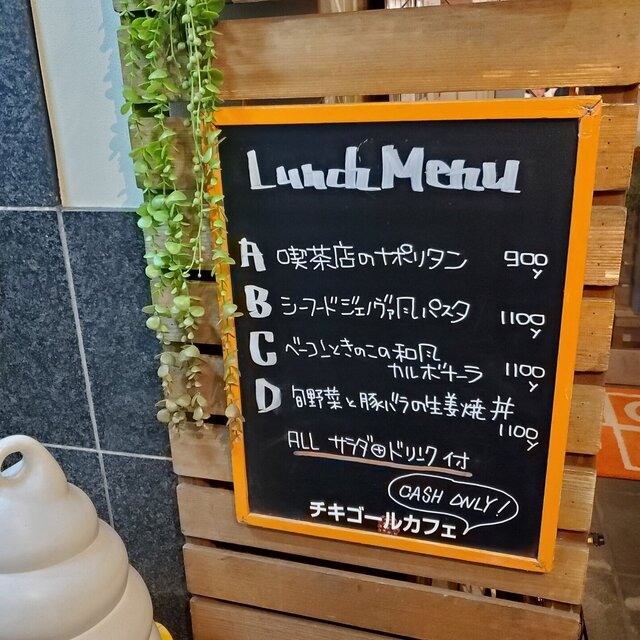 Lunch Menu
A 喫茶店のナポリタン 900y
B シーフードジェノヴァ風パスタ 1100y
C ベーコンときのこの和風
カルボナーラ 1100y
D 旬野菜と豚バラの生姜焼丼
1100y
ALL サラダ⊕ドリンク付
CASH ONLY!
チキゴールカフェ